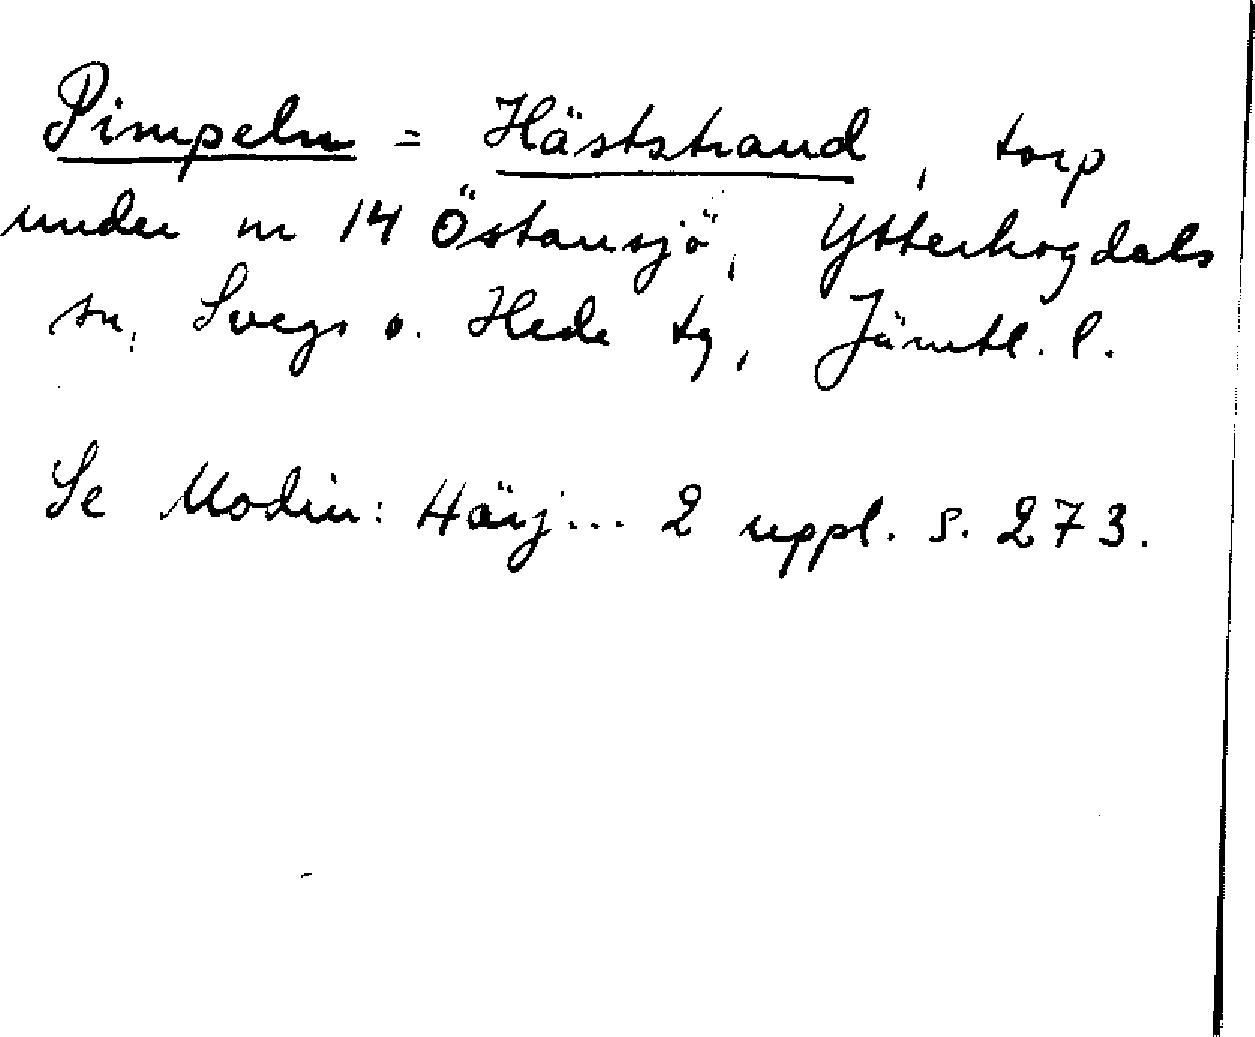 Pimpeln = Häststrand, torp
under nr 14 Östansjö, Ytterhogdals
sn, Svegs o. Hede tg, Jämtl. l.
Se Modin: Härj... 2 uppl. s. 273.